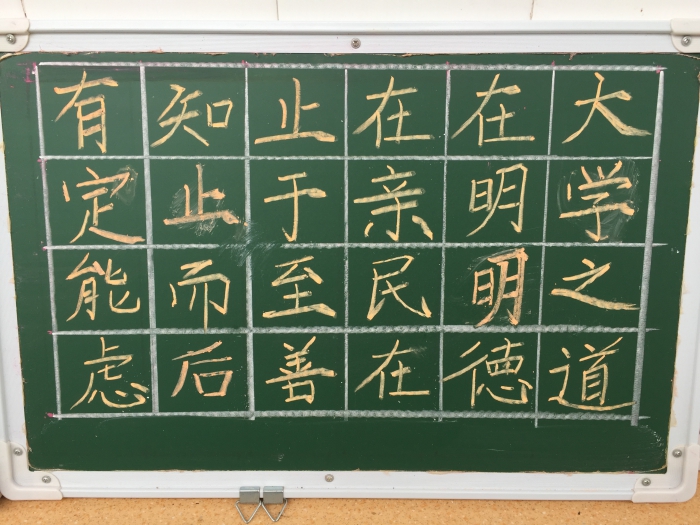 大学之道
在明明德
在亲民在
止于至善
知止而后
有定能虑